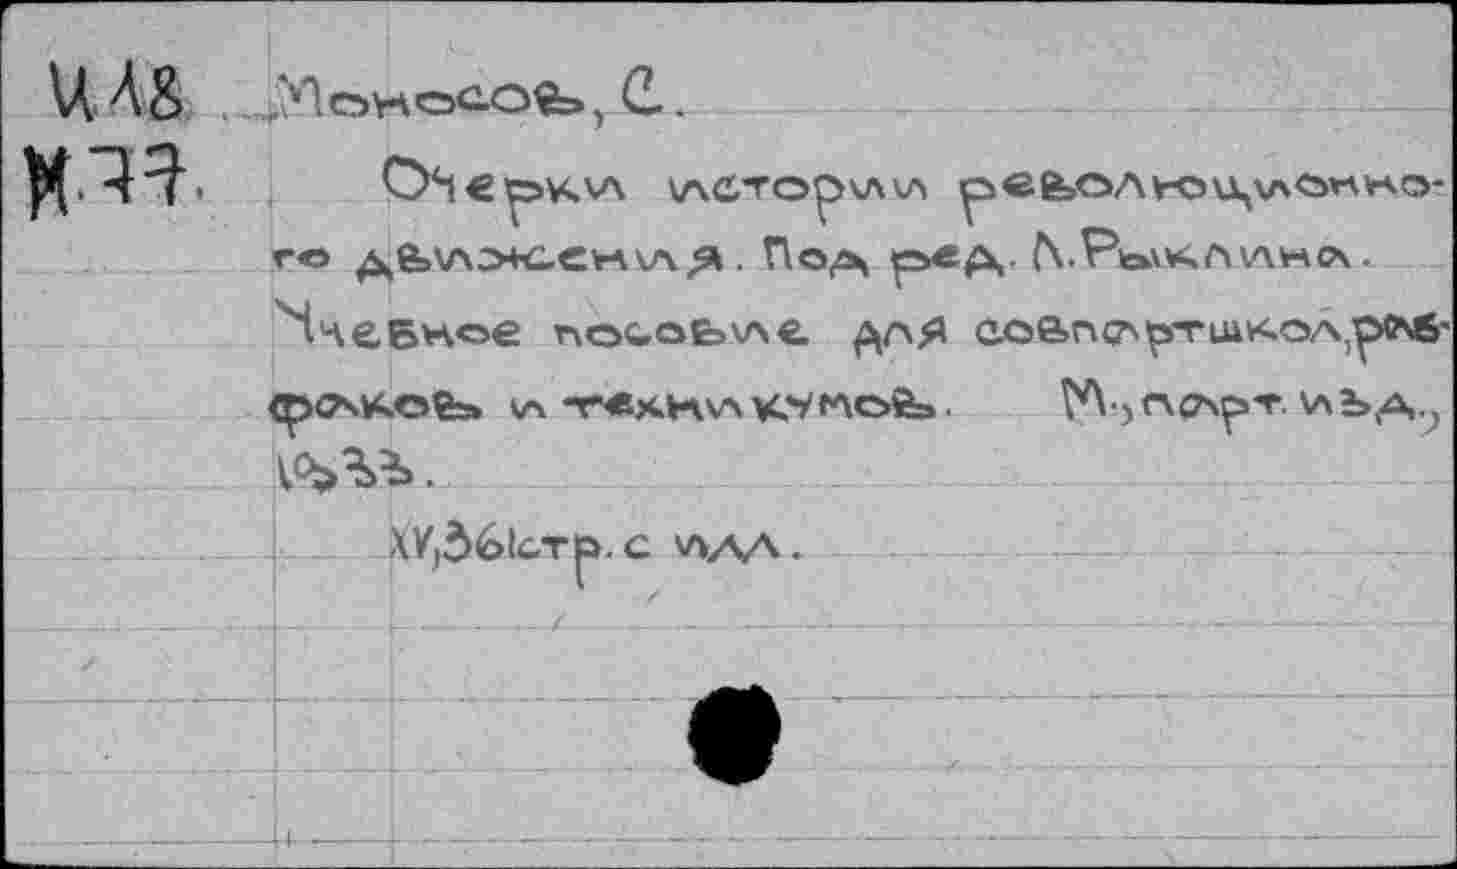 Ц18 Моносов, С.
И.77. Очерки истории революционно-
го движения. Под ред. П.Рыклина.
Учебное пособие для совпартшкол,раб-
факов и техникумов. М., парт. изд.,
1933.
XV,361стр. с илл.